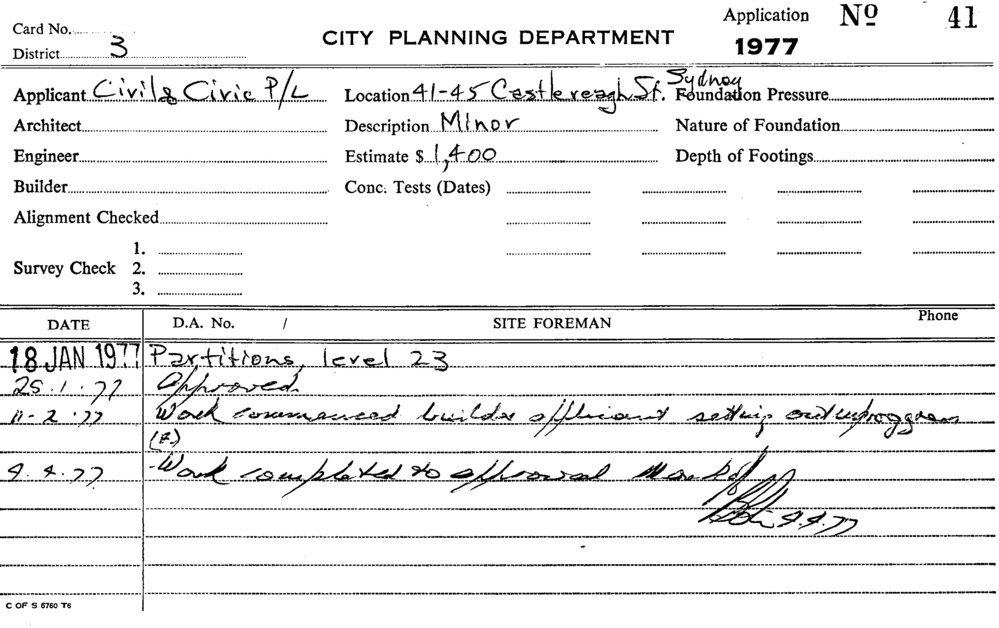 Card No.
Application Nº 41
District 3
CITY PLANNING DEPARTMENT
1977
Applicant Civil & Civic P/L Location 41-45 Castlereagh St. Sydney Foundation Pressure
Architect Description Minor Nature of Foundation
Engineer Estimate $ 1,400 Depth of Footings
Builder Conc. Tests (Dates)
Alignment Checked
Survey Check 1.
2.
3.
DATE D.A. No. / SITE FOREMAN Phone
18 JAN 1977 Partitions, level 23
25.1.77 Approved.
11-2.77 Work commenced builder applicant setting out in
4.4.77 -Work completed to approval
4.4.77
C OF S 6760 T6